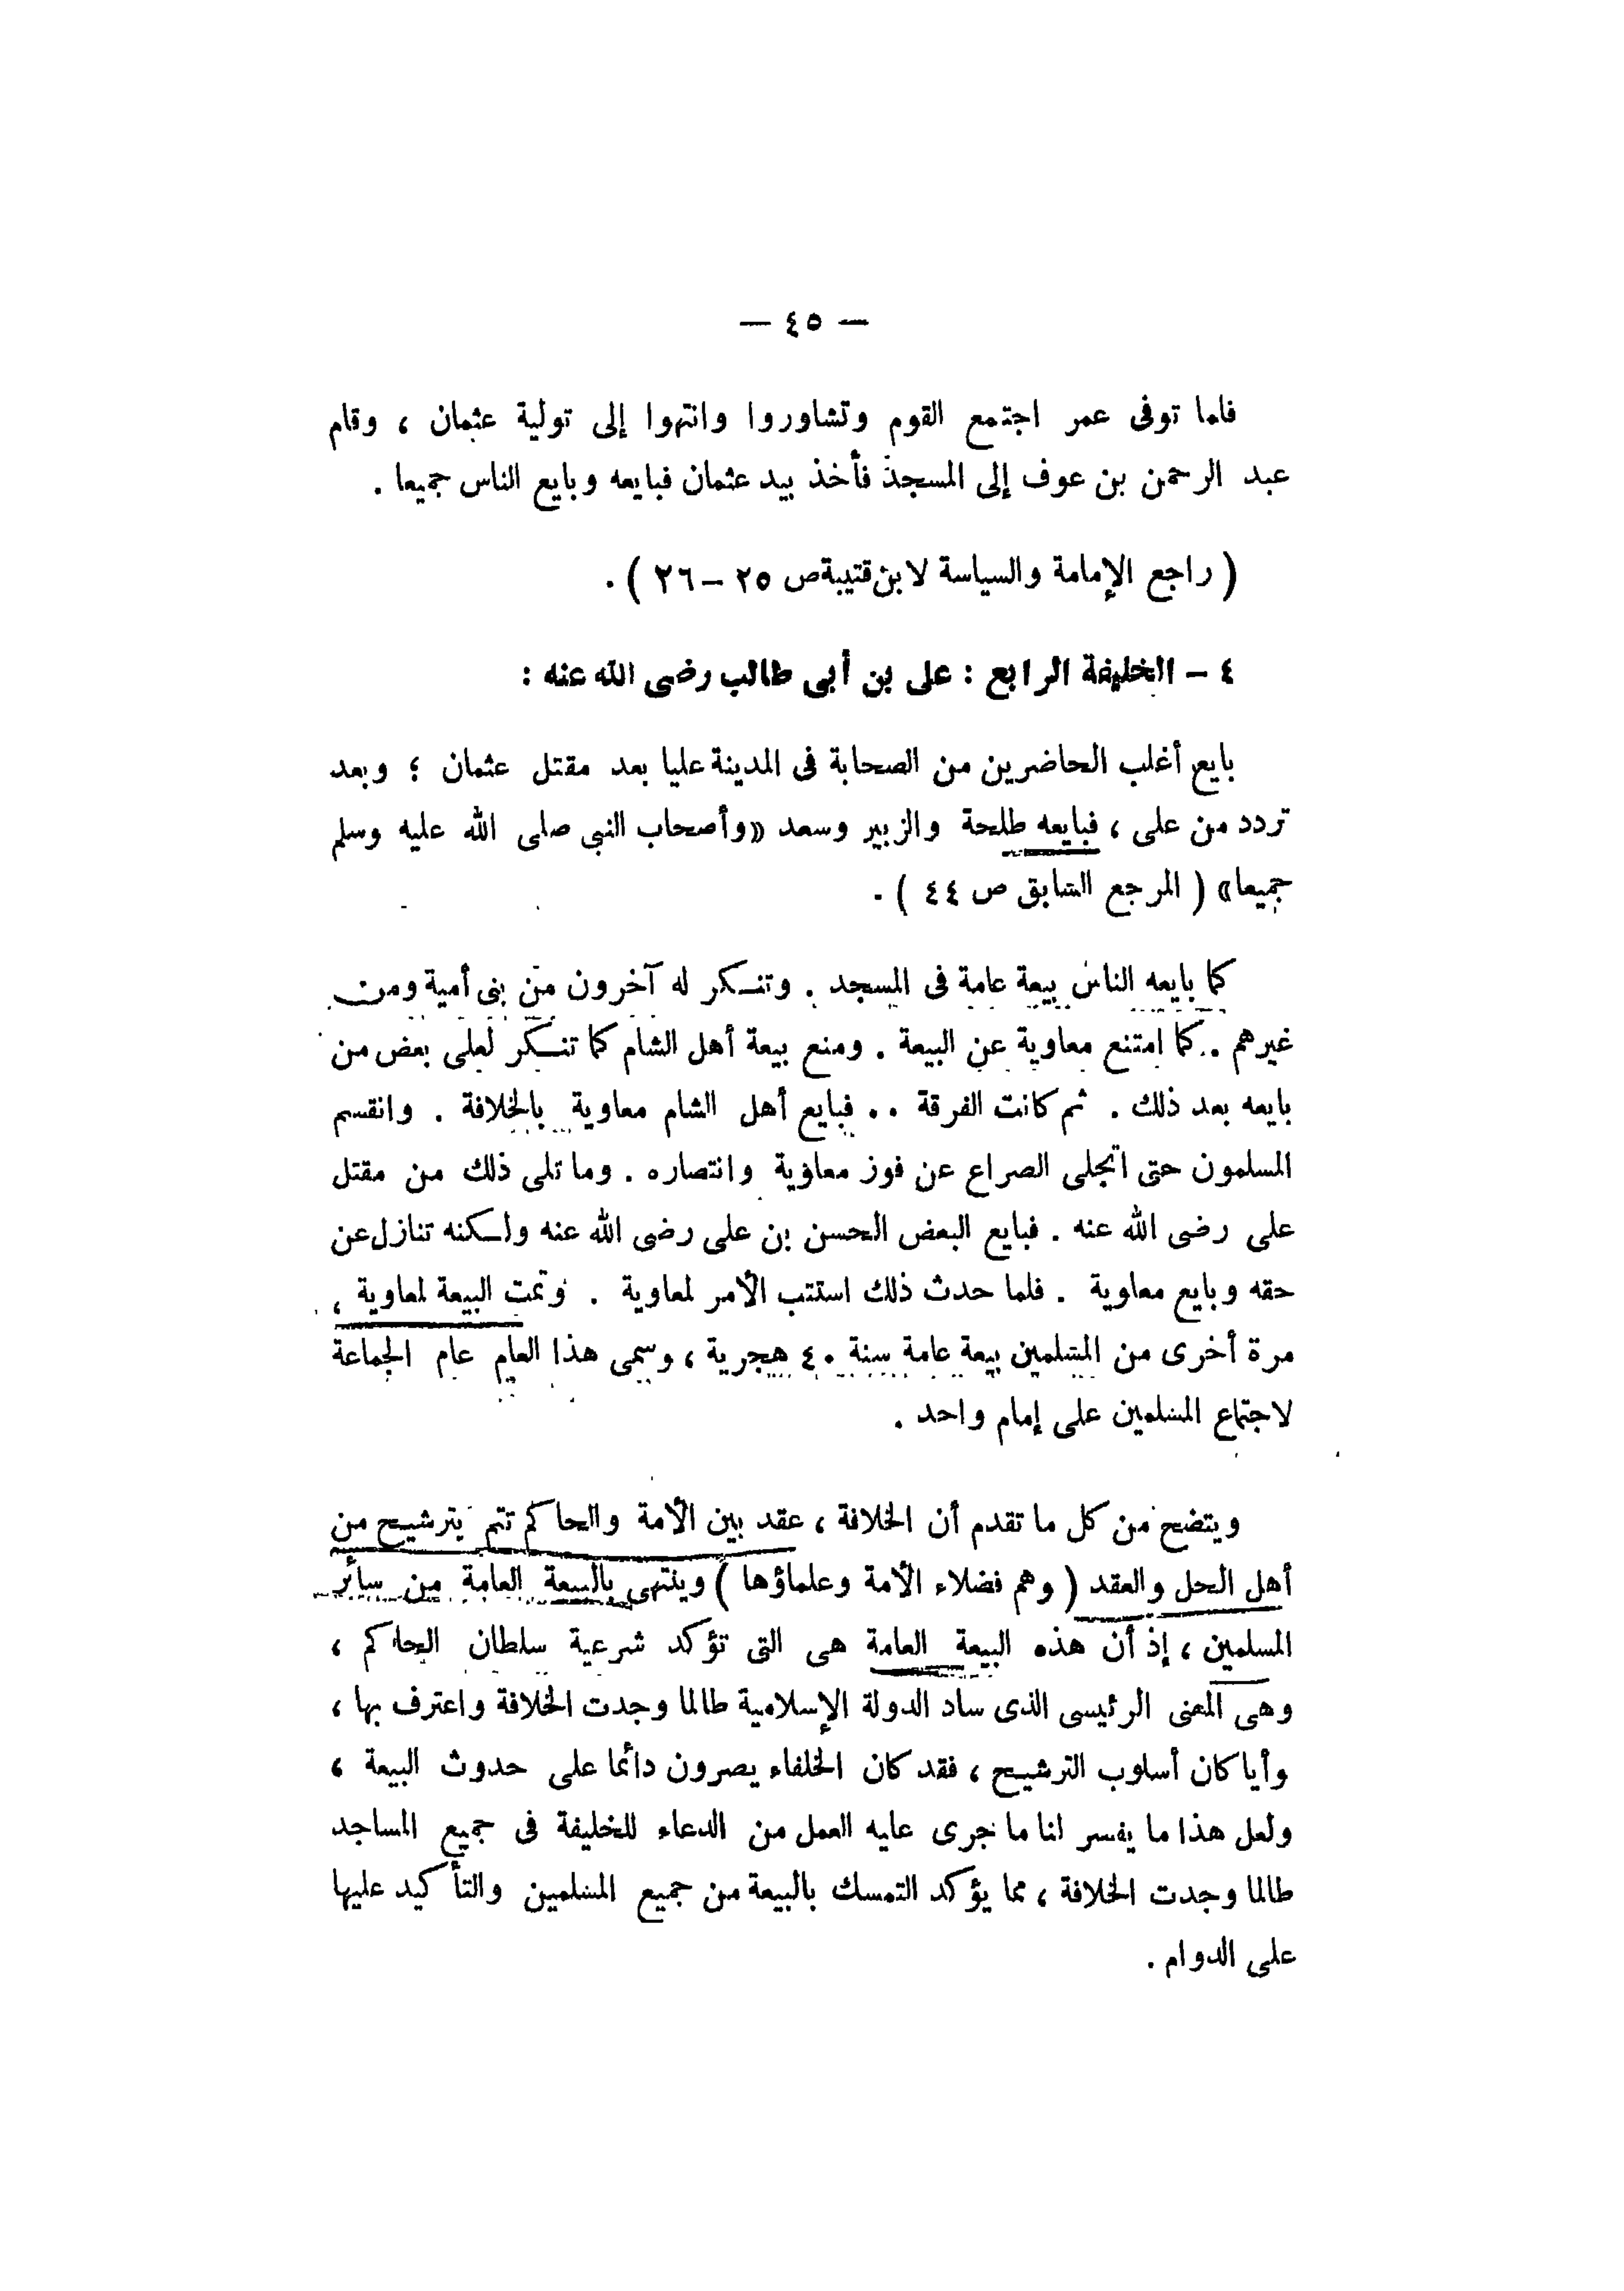 — ٤٥ —
فلما توفى عمر اجتمع القوم وتشاوروا وانتهوا إلى تولية عثمان ، وقام
عبد الرحمن بن عوف إلى المسجد فأخذ بيد عثمان فبايعه وبايع الناس جميعا .
( راجع الإمامة والسياسة لابن قتيبة ص ٢٥ – ٢٦ ) .
٤ – الخليفة الرابع : على بن أبى طالب رضى الله عنه :
بايع أغلب الحاضرين من الصحابة فى المدينة عليا بعد مقتل عثمان ؛ وبعد
تردد من على ، فبايعه طلحة والزبير وسعد «وأصحاب النبى صلى الله عليه وسلم
جميعا» ( المرجع السابق ص ٤٤ ) .
كما بايعه الناس بيعة عامة فى المسجد . وتنكر له آخرون من بنى أمية ومن
غيرهم . كما امتنع معاوية عن البيعة . ومنع بيعة أهل الشام كما تنكر لعلى بعض من
بايعه بعد ذلك . ثم كانت الفرقة .. فبايع أهل الشام معاوية بالخلافة . وانقسم
المسلمون حتى انجلى الصراع عن فوز معاوية وانتصاره . وما تلى ذلك من مقتل
على رضى الله عنه . فبايع البعض الحسن بن على رضى الله عنه ولكنه تنازل عن
حقه وبايع معاوية . فلما حدث ذلك استتب الأمر لمعاوية . وتمت البيعة لمعاوية ،
مرة أخرى من المسلمين بيعة عامة سنة ٤٠ هجرية ، وسمى هذا العام عام الجماعة
لاجتماع المسلمين على إمام واحد .
ويتضح من كل ما تقدم أن الخلافة ، عقد بين الأمة والحاكم تتم بترشيح من
أهل الحل والعقد ( وهم فضلاء الأمة وعلماؤها ) وينتهى بالبيعة العامة من سائر
المسلمين ، إذ أن هذه البيعة العامة هى التى تؤكد شرعية سلطان الحاكم ،
وهى المعنى الرئيسى الذى ساد الدولة الإسلامية طالما وجدت الخلافة واعترف بها ،
وأيا كان أسلوب الترشيح ، فقد كان الخلفاء يصرون دائما على حدوث البيعة ،
ولعل هذا ما يفسر لنا ما جرى عليه العمل من الدعاء للخليفة فى جميع المساجد
طالما وجدت الخلافة ، مما يؤكد التمسك بالبيعة من جميع المسلمين والتأكيد عليها
على الدوام .